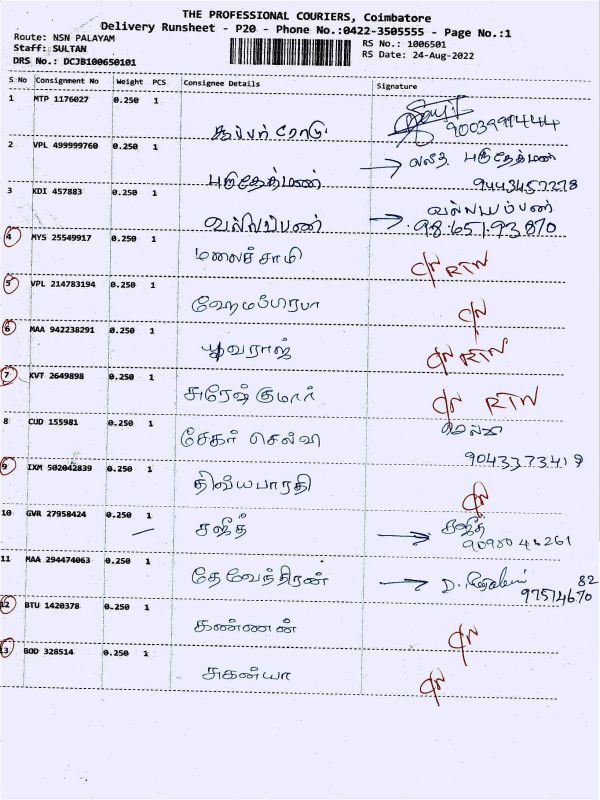 THE PROFESSIONAL COURIERS, Coimbatore
Delivery Runsheet - P20 - Phone No.:0422-3505555 - Page No.:1
Route: NSN PALAYAM
Staff: SULTAN
DRS No.: DCJB100650101
RS No.: 1006501
RS Date: 24-Aug-2022
S No Consignment No Weight PCS Consignee Details Signature
1 MTP 1176027 0.250 1
சூப்பர் ரோடு
2 VPL 499999760 0.250 1
புருஷோத்மன்
9443457278
3 KDI 457883 0.250 1
வள்ளியப்பன்
98.651.93870
4 MYS 25549917 0.250 1
மலைச்சாமி C/N RTN
5 VPL 214783194 0.250 1
ஹேமப்பிரபா C/N
6 MAA 942238291 0.250 1
பூவராஜ் C/N RTN
7 KVT 2649898 0.250 1
சுரேஷ் குமார் C/N RTN
8 CUD 155981 0.250 1
சேகர் செல்வி
9043373419
9 IXM 502042839 0.250 1
திவ்யபாரதி C/N
10 GVR 27958424 0.250 1
சஜீத் சஜீத்
11 MAA 294474063 0.250 1
தேவேந்திரன்
82
97514670
12 BTU 1420378 0.250 1
கண்ணன் C/N
13 BOD 328514 0.250 1
சுகன்யா C/N